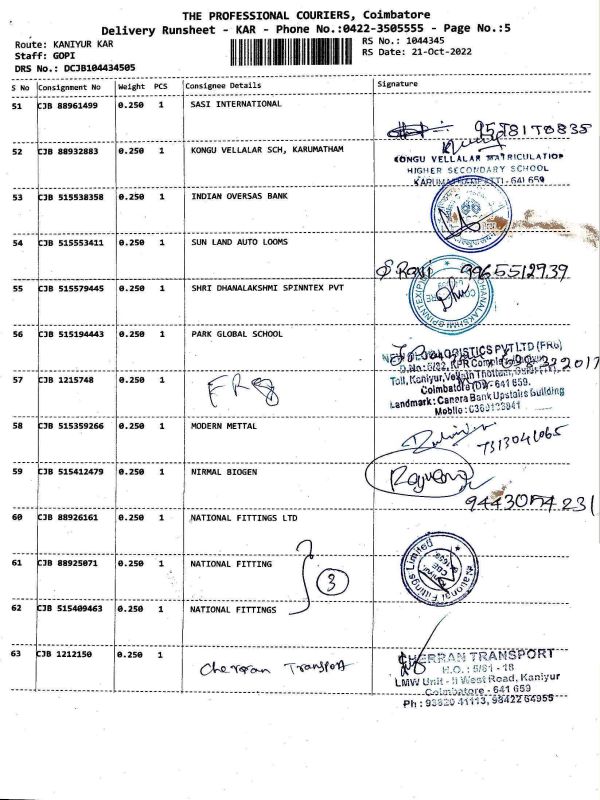 THE PROFESSIONAL COURIERS, Coimbatore
Delivery Runsheet - KAR - Phone No.:0422-3505555 - Page No.:5
Route: KANIYUR KAR
RS No.: 1044345
Staff: GOPI
RS Date: 21-Oct-2022
DRS No.: DCJB104434505
S No Consignment No Weight PCS Consignee Details Signature
51 CJB 88961499 0.250 1 SASI INTERNATIONAL
52 CJB 88932883 0.250 1 KONGU VELLALAR SCH, KARUMATHAM
KONGU VELLALAR MATRICULATION
HIGHER SECONDARY SCHOOL
KARUMATHAMPATTI - 641 659
53 CJB 515538358 0.250 1 INDIAN OVERSAS BANK
54 CJB 515553411 0.250 1 SUN LAND AUTO LOOMS
S Ravi 9965512939
55 CJB 515579445 0.250 1 SHRI DHANALAKSHMI SPINNTEX PVT
56 CJB 515194443 0.250 1 PARK GLOBAL SCHOOL
LOGISTICS PVT LTD (FR8)
57 CJB 1215748 0.250 1 FR8
Toll, Kaniyur,
Coimbatore (Dt)- 641 659.
Landmark: Canera Bank Upstairs Building
Mobile:
58 CJB 515359266 0.250 1 MODERN METTAL
7313041065
59 CJB 515412479 0.250 1 NIRMAL BIOGEN
60 CJB 88926161 0.250 1 NATIONAL FITTINGS LTD
61 CJB 88925071 0.250 1 NATIONAL FITTING
3
National Fittings Limited
62 CJB 515409463 0.250 1 NATIONAL FITTINGS
63 CJB 1212150 0.250 1 Cherran Transport
CHERRAN TRANSPORT
H.O. : 5/81 - 18
LMW Unit - II West Road, Kaniyur
Coimbatore - 641 659
Ph : 93620 41113, 98422 64955